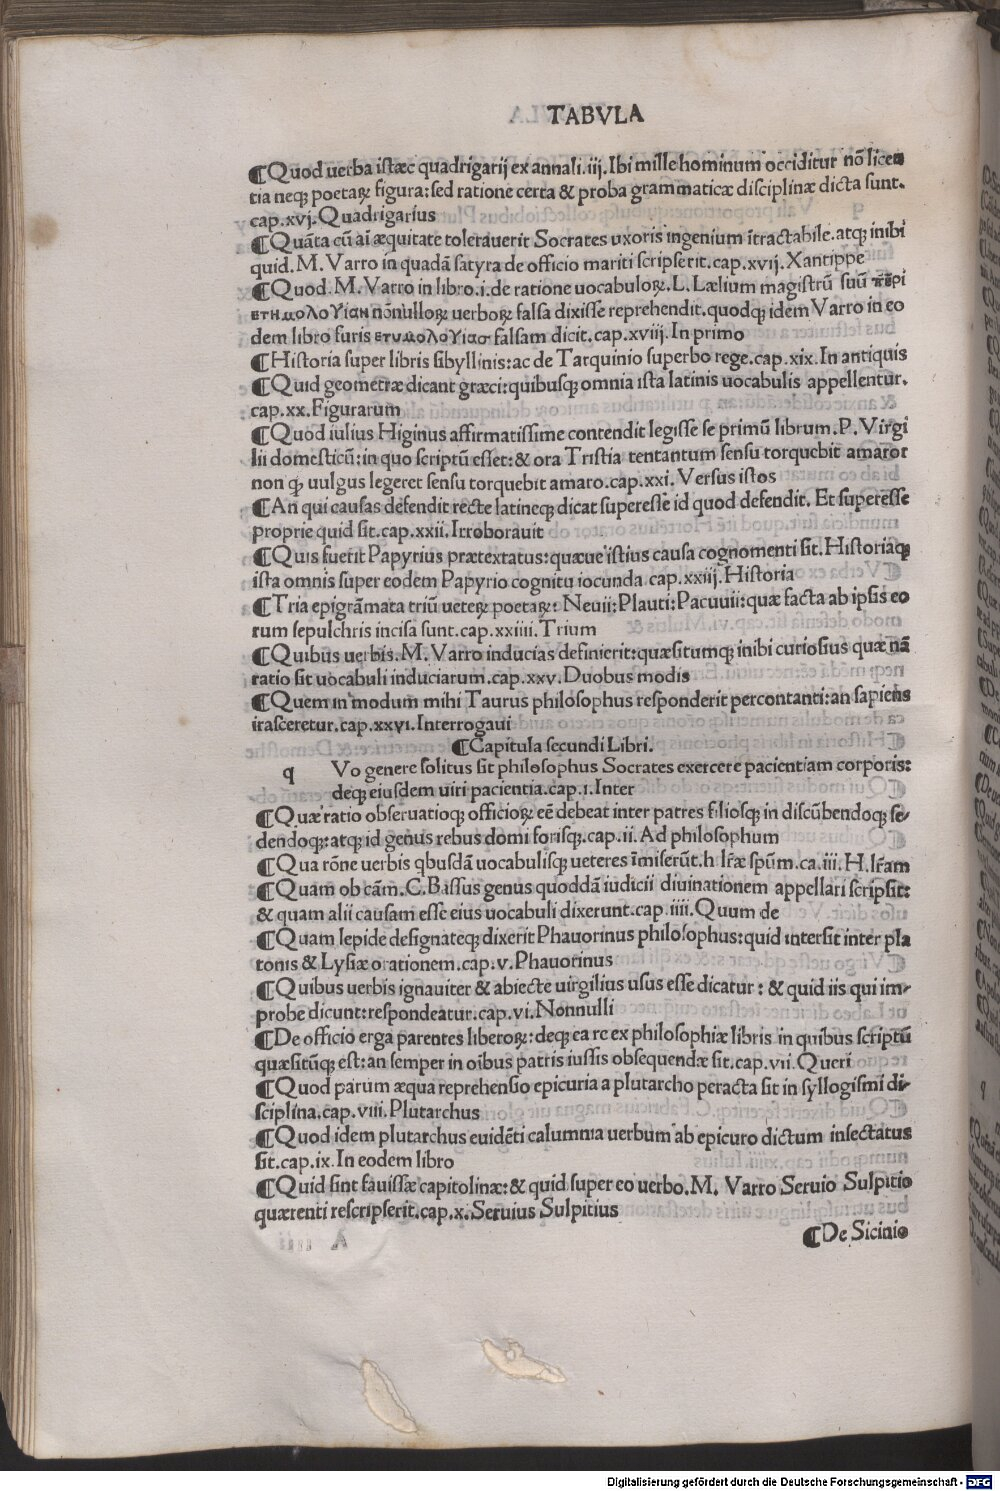 TABVLA
¶Quod uerba istæc quadrigarij ex annali.iij. Ibi mille hominum occiditur nõ licen
tia neqꝫ poetaꝝ figura: sed ratione certa & proba grammaticæ disciplinæ dicta sunt.
cap.xvj.Quadrigarius
¶Quãta cũ aĩ æquitate tolerauerit Socrates vxoris ingenium ĩtractabile.atqꝫ inibi
quid.M.Varro in quadã satyra de officio mariti scripserit.cap.xvij.Xantippe
¶Quod.M.Varro in libro.i.de ratione uocabuloꝝ.L.Lælium magistrũ suũ περι
ετημολογιαν nõnulloꝝ uerboꝝ falsa dixisse reprehendit.quodqꝫ idem Varro in eo
dem libro furis ετυμολογιας falsam dicit.cap.xviij.In primo
¶Historia super libris sibyllinis:ac de Tarquinio superbo rege.cap.xix.In antiquis
¶Quid geometræ dicant græci:quibusqꝫ omnia ista latinis uocabulis appellentur.
cap.xx.Figurarum
¶Quod iulius Higinus affirmatissime contendit legisse se primũ librum.P.Virgi
lii domesticũ:in quo scriptũ esset:& ora Tristia tentantum sensu torquebit amaror
non qꝫ uulgus legeret sensu torquebit amaro.cap.xxi.Versus istos
¶An qui causas defendit recte latineqꝫ dicat superesse id quod defendit. Et superesse
proprie quid sit.cap.xxii.Irroborauit
¶Quis fuerit Papyrius prætextatus:quæue istius causa cognomenti sit.Historiaqꝫ
ista omnis super eodem Papyrio cognitu iocunda.cap.xxiij.Historia
¶Tria epigrãmata triũ ueteꝝ poetaꝝ: Neuii:Plauti:Pacuuii:quæ facta ab ipsis eo
rum sepulchris incisa sunt.cap.xxiiii.Trium
¶Quibus uerbis.M.Varro inducias definierit:quæsitumqꝫ inibi curiosius quæ nã
ratio sit uocabuli induciarum.cap.xxv.Duobus modis
¶Quem in modum mihi Taurus philosophus responderit percontanti:an sapiens
irasceretur.cap.xxvi.Interrogaui
¶Capitula secundi Libri.
q Vo genere solitus sit philosophus Socrates exercere pacientiam corporis:
deqꝫ eiusdem uiri pacientia.cap.i.Inter
¶Quæ ratio obseruatioqꝫ officioꝝ eẽ debeat inter patres filiosqꝫ in discũbendoqꝫ se-
dendoqꝫ:atqꝫ id genus rebus domi forisqꝫ.cap.ii.Ad philosophum
¶Qua rõne uerbis qbusdã uocabulisqꝫ ueteres ĩmiserũt.h lr̃æ spũm.ca.iii.H.lr̃am
¶Quam ob cãm.C.Bassus genus quoddã iudicii diuinationem appellari scripsit:
& quam alii causam esse eius uocabuli dixerunt.cap.iiii.Quum de
¶Quam lepide designateqꝫ dixerit Phauorinus philosophus:quid intersit inter pla
tonis & Lysiæ orationem.cap.v.Phauorinus
¶Quibus uerbis ignauiter & abiecte uirgilius usus esse dicatur: & quid iis qui im-
probe dicunt:respondeatur.cap.vi.Nonnulli
¶De officio erga parentes liberoꝝ:deqꝫ ea re ex philosophiæ libris in quibus scriptũ
quæsitũqꝫ est:an semper in oĩbus patris iussis obsequendæ sit.cap.vii.Queri
¶Quod parum æqua reprehensio epicuria a plutarcho peracta sit in syllogismi di-
sciplina.cap.viii.Plutarchus
¶Quod idem plutarchus euidẽti calumnia uerbum ab epicuro dictum insectatus
sit.cap.ix.In eodem libro
¶Quid sint fauissæ capitolinæ:& quid super eo uerbo.M. Varro Seruio Sulpitio
quærenti rescripserit.cap.x.Seruius Sulpitius
¶De Sicinio
Digitalisierung gefördert durch die Deutsche Forschungsgemeinschaft - DFG